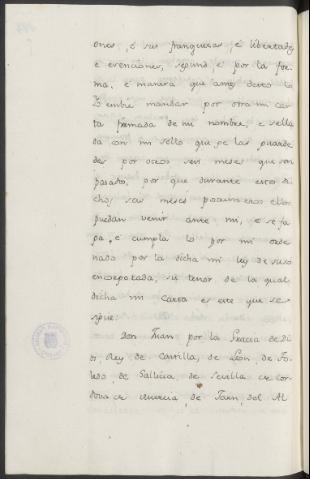 ones, e sus franquezas, e libertades
e exenciones, segund, e por la for
ma, e manera que antes desto lo
Yo embie mandar por otra mi car
ta firmada de mi nombre, e sella
da con mi sello que ge las guarde
des por otros seis meses que son
pasado, por que durante estos di
chos seis meses ellos
puedan venir ante mi, e se fa
ga, e cumpla lo por mi orde
nado por la dicha mi ley de suso
encorporada, su tenor de la qual
dicha mi carta es este que se si
gue.
Don Juan por la Gracia de Di
os, Rey de Castilla, de Leon, de To
ledo, de Gallicia, de Sevilla de Cor
dova de Murcia, de Jaen, del Al